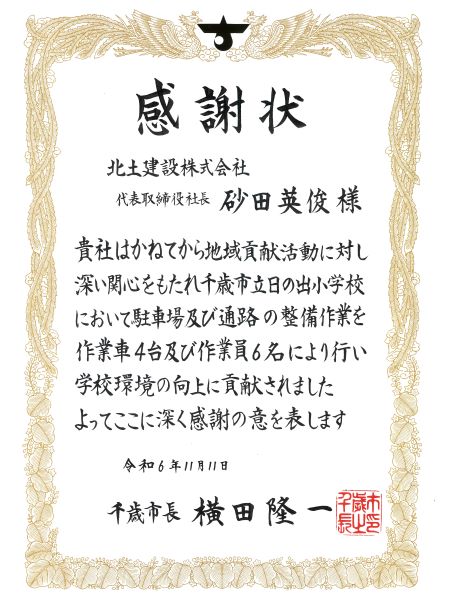 感謝状
北土建設株式会社
代表取締役社長 砂田英俊様
貴社はかねてから地域貢献活動に対し
深い関心をもたれ千歳市立日の出小学校
において駐車場及び通路の整備作業を
作業車4台及び作業員6名により行い
学校環境の向上に貢献されました
よってここに深く感謝の意を表します
令和6年11月11日
千歳市長 横田隆一
千歳市長之印